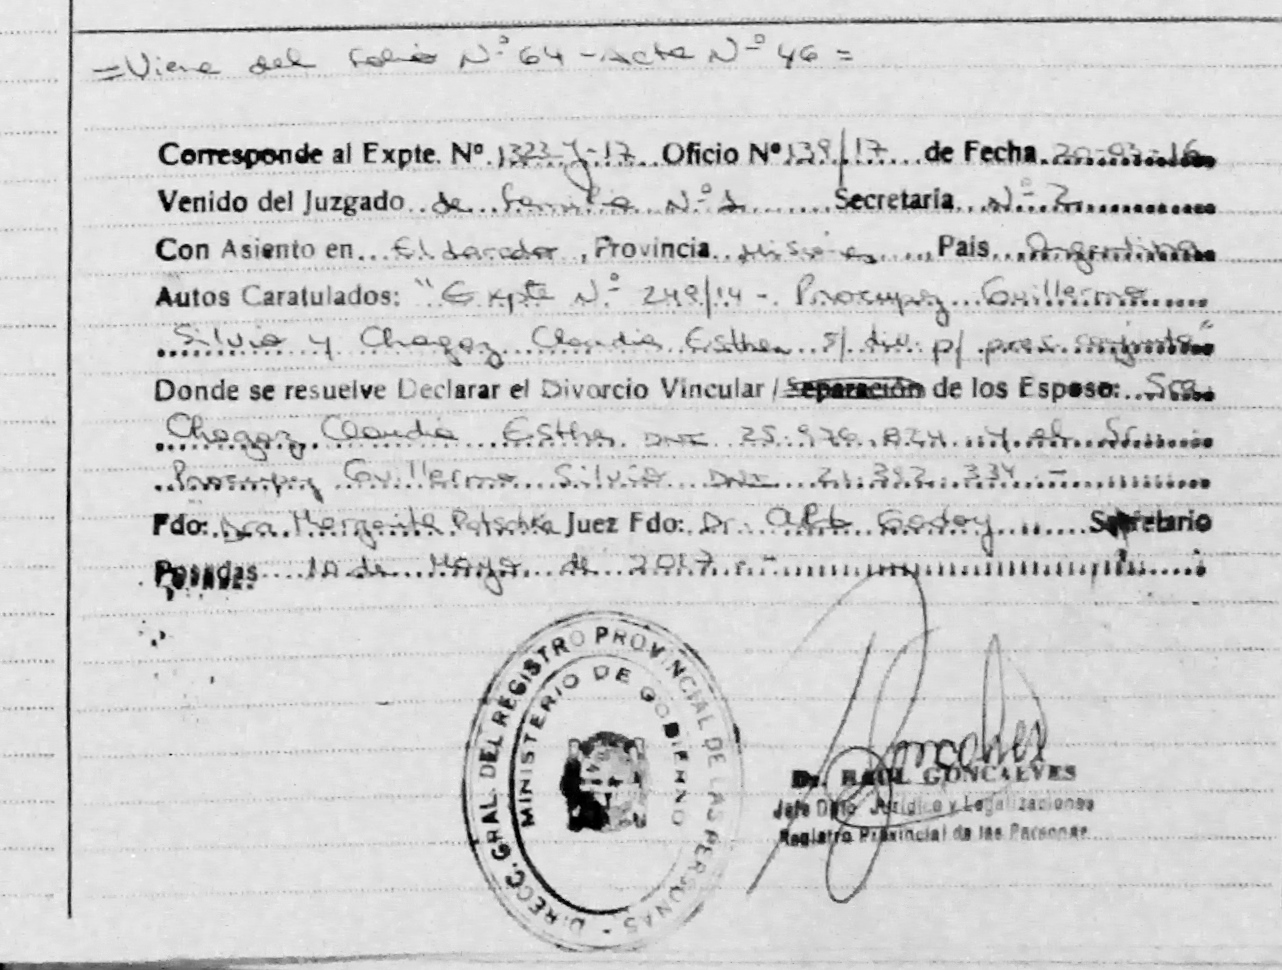 =Viene del folio Nº 64 - Acta Nº 46=
Corresponde al Expte. Nº 1323-J-17 Oficio Nº 139/17 de Fecha 20-03-16
Venido del Juzgado de Familia Nº 1 Secretaria Nº 2
Con Asiento en Eldorado, Provincia Misiones, País Argentina
Autos Caratulados: "Expte Nº 249/14 - Guillermo
Silvio y Claudia Esther s/ div. p/ pres. conjunta"
Donde se resuelve Declarar el Divorcio Vincular / Separación de los Esposo: Sra.
Claudia Esther DNI y el Sr.
Guillermo Silvio DNI 21.392.334.-
Fdo: Dra. Margarita Potschka Juez Fdo: Dr. Godoy Secretario
Posadas 10 de Mayo de 2017.-
DIRECC. GRAL. DEL REGISTRO PROVINCIAL DE LAS PERSONAS -
MINISTERIO DE GOBIERNO
Dr. RAUL GONCALVES
Jefe Dpto Jurídico y Legalizaciones
Registro Provincial de las Personas